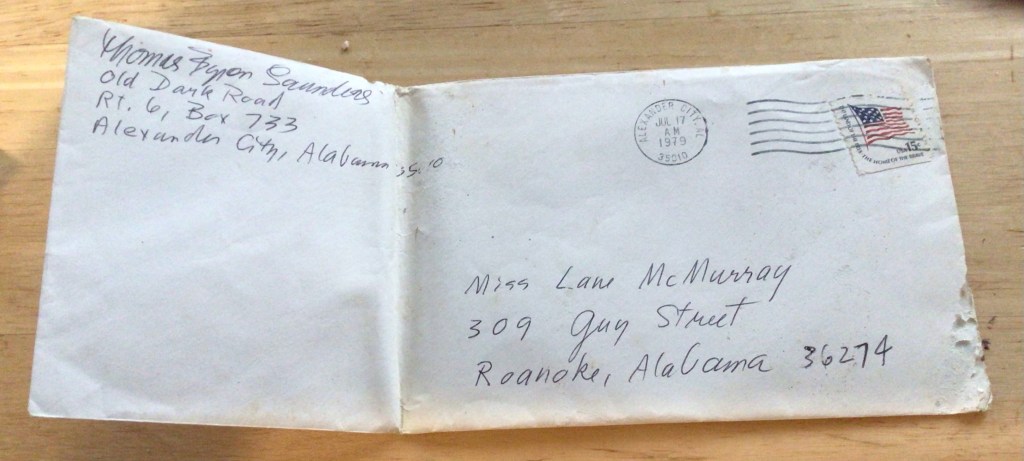 Thomas Byron Saunders
Old Dark Road
Rt. 6, Box 733
Alexander City, Alabama 35010
ALEXANDER CITY, AL
JUL 17
A.M
1979
35010
USA 15c
THE HOME OF THE BRAVE
Miss Lane McMurray
309 Guy Street
Roanoke, Alabama 36274